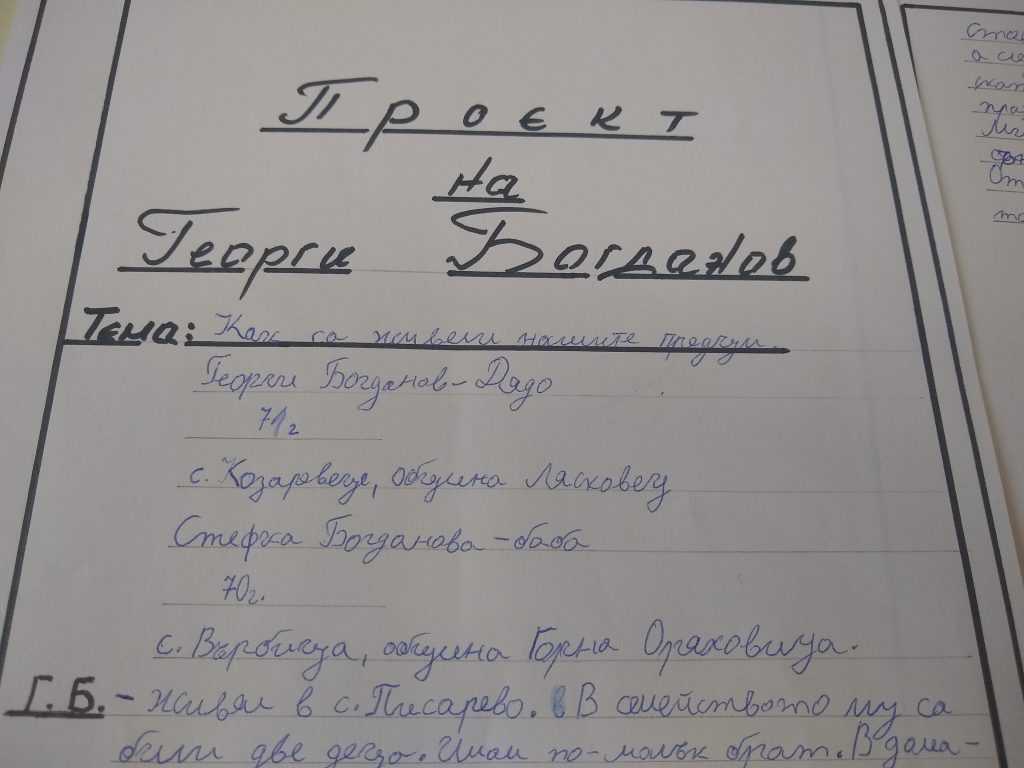 Проект
на
Георги Богданов
Тема: Как са живели нашите предци.
Георги Богданов - Дядо
71г
с. Козаревец, община Лясковец
Стефка Богданова - баба
70г.
с. Върбица, община Горна Оряховица.
Г. Б. - Живял в с. Писарево. В семейството му са
били две деца. Имал по-малък брат. В дома-